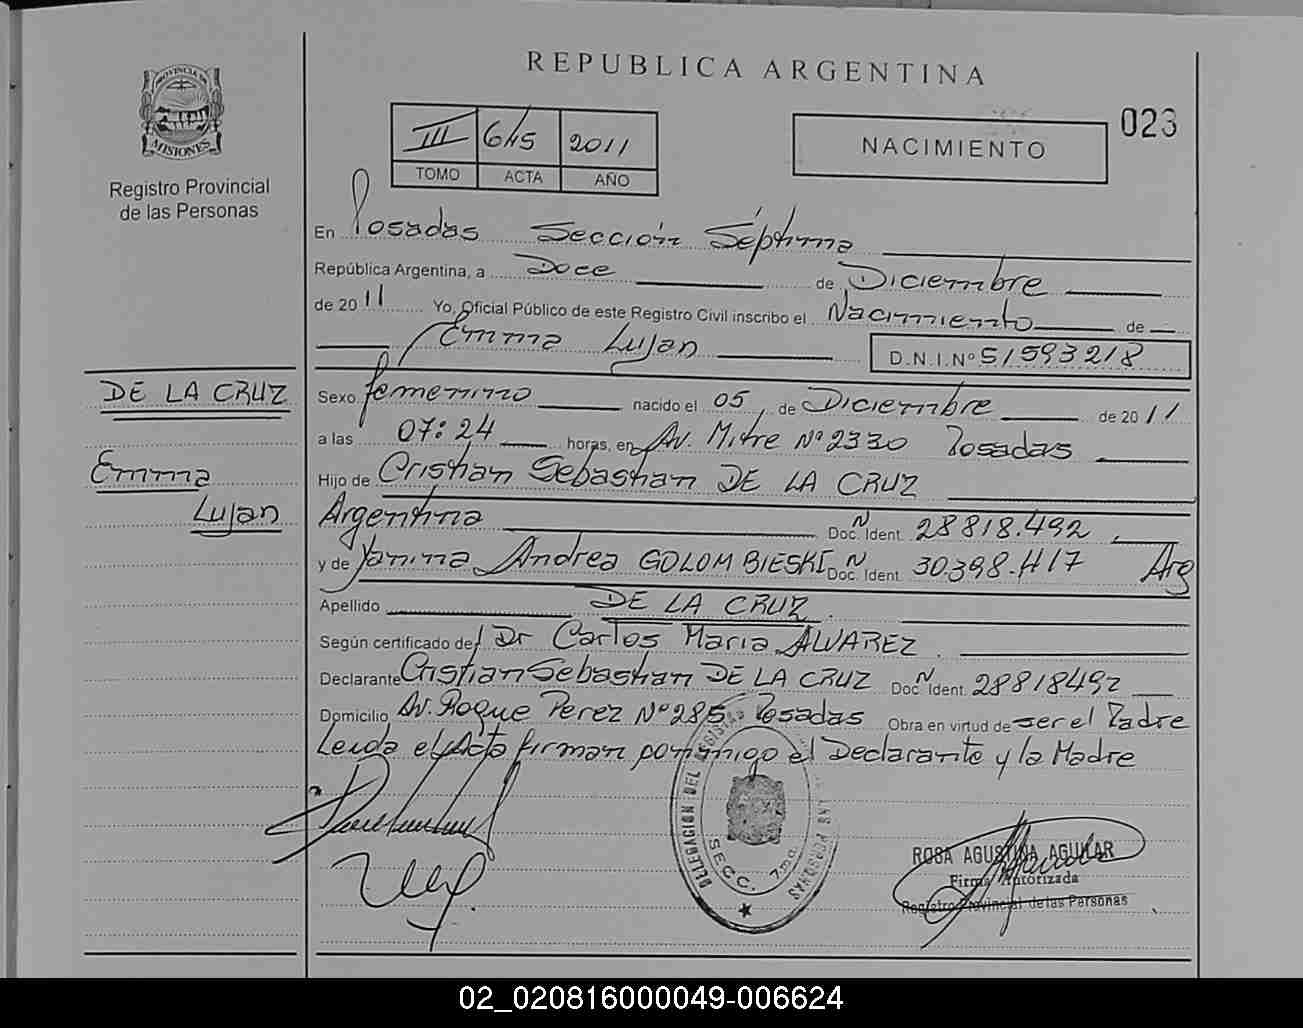 REPUBLICA ARGENTINA
PROVINCIA DE
MISIONES
Registro Provincial
de las Personas
III 645 2011
TOMO ACTA AÑO
NACIMIENTO
023
En Posadas Sección Séptima
República Argentina, a Doce de Diciembre
de 2011 Yo, Oficial Público de este Registro Civil inscribo el Nacimiento de
Emma Lujan D.N.I.Nº 51593218
DE LA CRUZ
Emma
Lujan
Sexo femenino nacido el 05 de Diciembre de 2011
a las 07:24 horas, en Av. Mitre Nº 2330 Posadas
Hijo de Cristian Sebastian DE LA CRUZ
Argentina Doc. Ident. N 28818.492
y de Yanina Andrea GOLOMBIESKI Doc. Ident. N 30.398.417 Arg
Apellido DE LA CRUZ
Según certificado del Dr Carlos Maria ALVAREZ
Declarante Cristian Sebastian DE LA CRUZ Doc. Ident. N 28818492
Domicilio Av. Roque Perez Nº 285 Posadas Obra en virtud de ser el Padre
Leida el Acta firman conmigo el Declarante y la Madre
DELEGACION DEL REGISTRO DE LAS PERSONAS
SECC. 7ma.
ROSA AGUSTINA AGUILAR
Firma Autorizada
Registro Provincial de las Personas
02_020816000049-006624